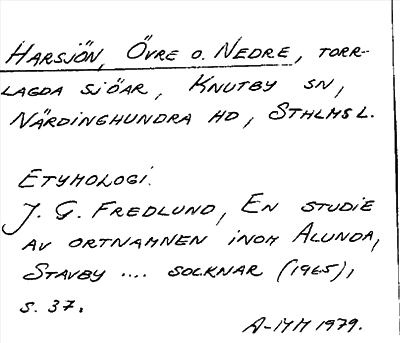 HARSJÖN, ÖVRE O. NEDRE, TORR-
LAGDA SJÖAR, KNUTBY SN,
NÄRDINGHUNDRA HD, STHLMS L.
ETYMOLOGI.
J. G. FREDLUND, EN STUDIE
AV ORTNAMNEN INOM ALUNDA,
STAVBY .... SOCKNAR (1965),
S. 37.
A-MM 1979.